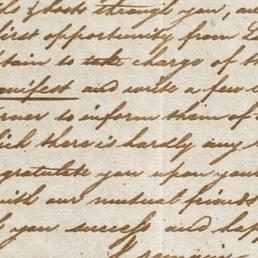 & posts through you, an
first opportunity from
to take charge of th
manifest and write a few l
to inform them of
there is hardly any
gratulate you upon your
with our mutual friends
you success and hap
I remain